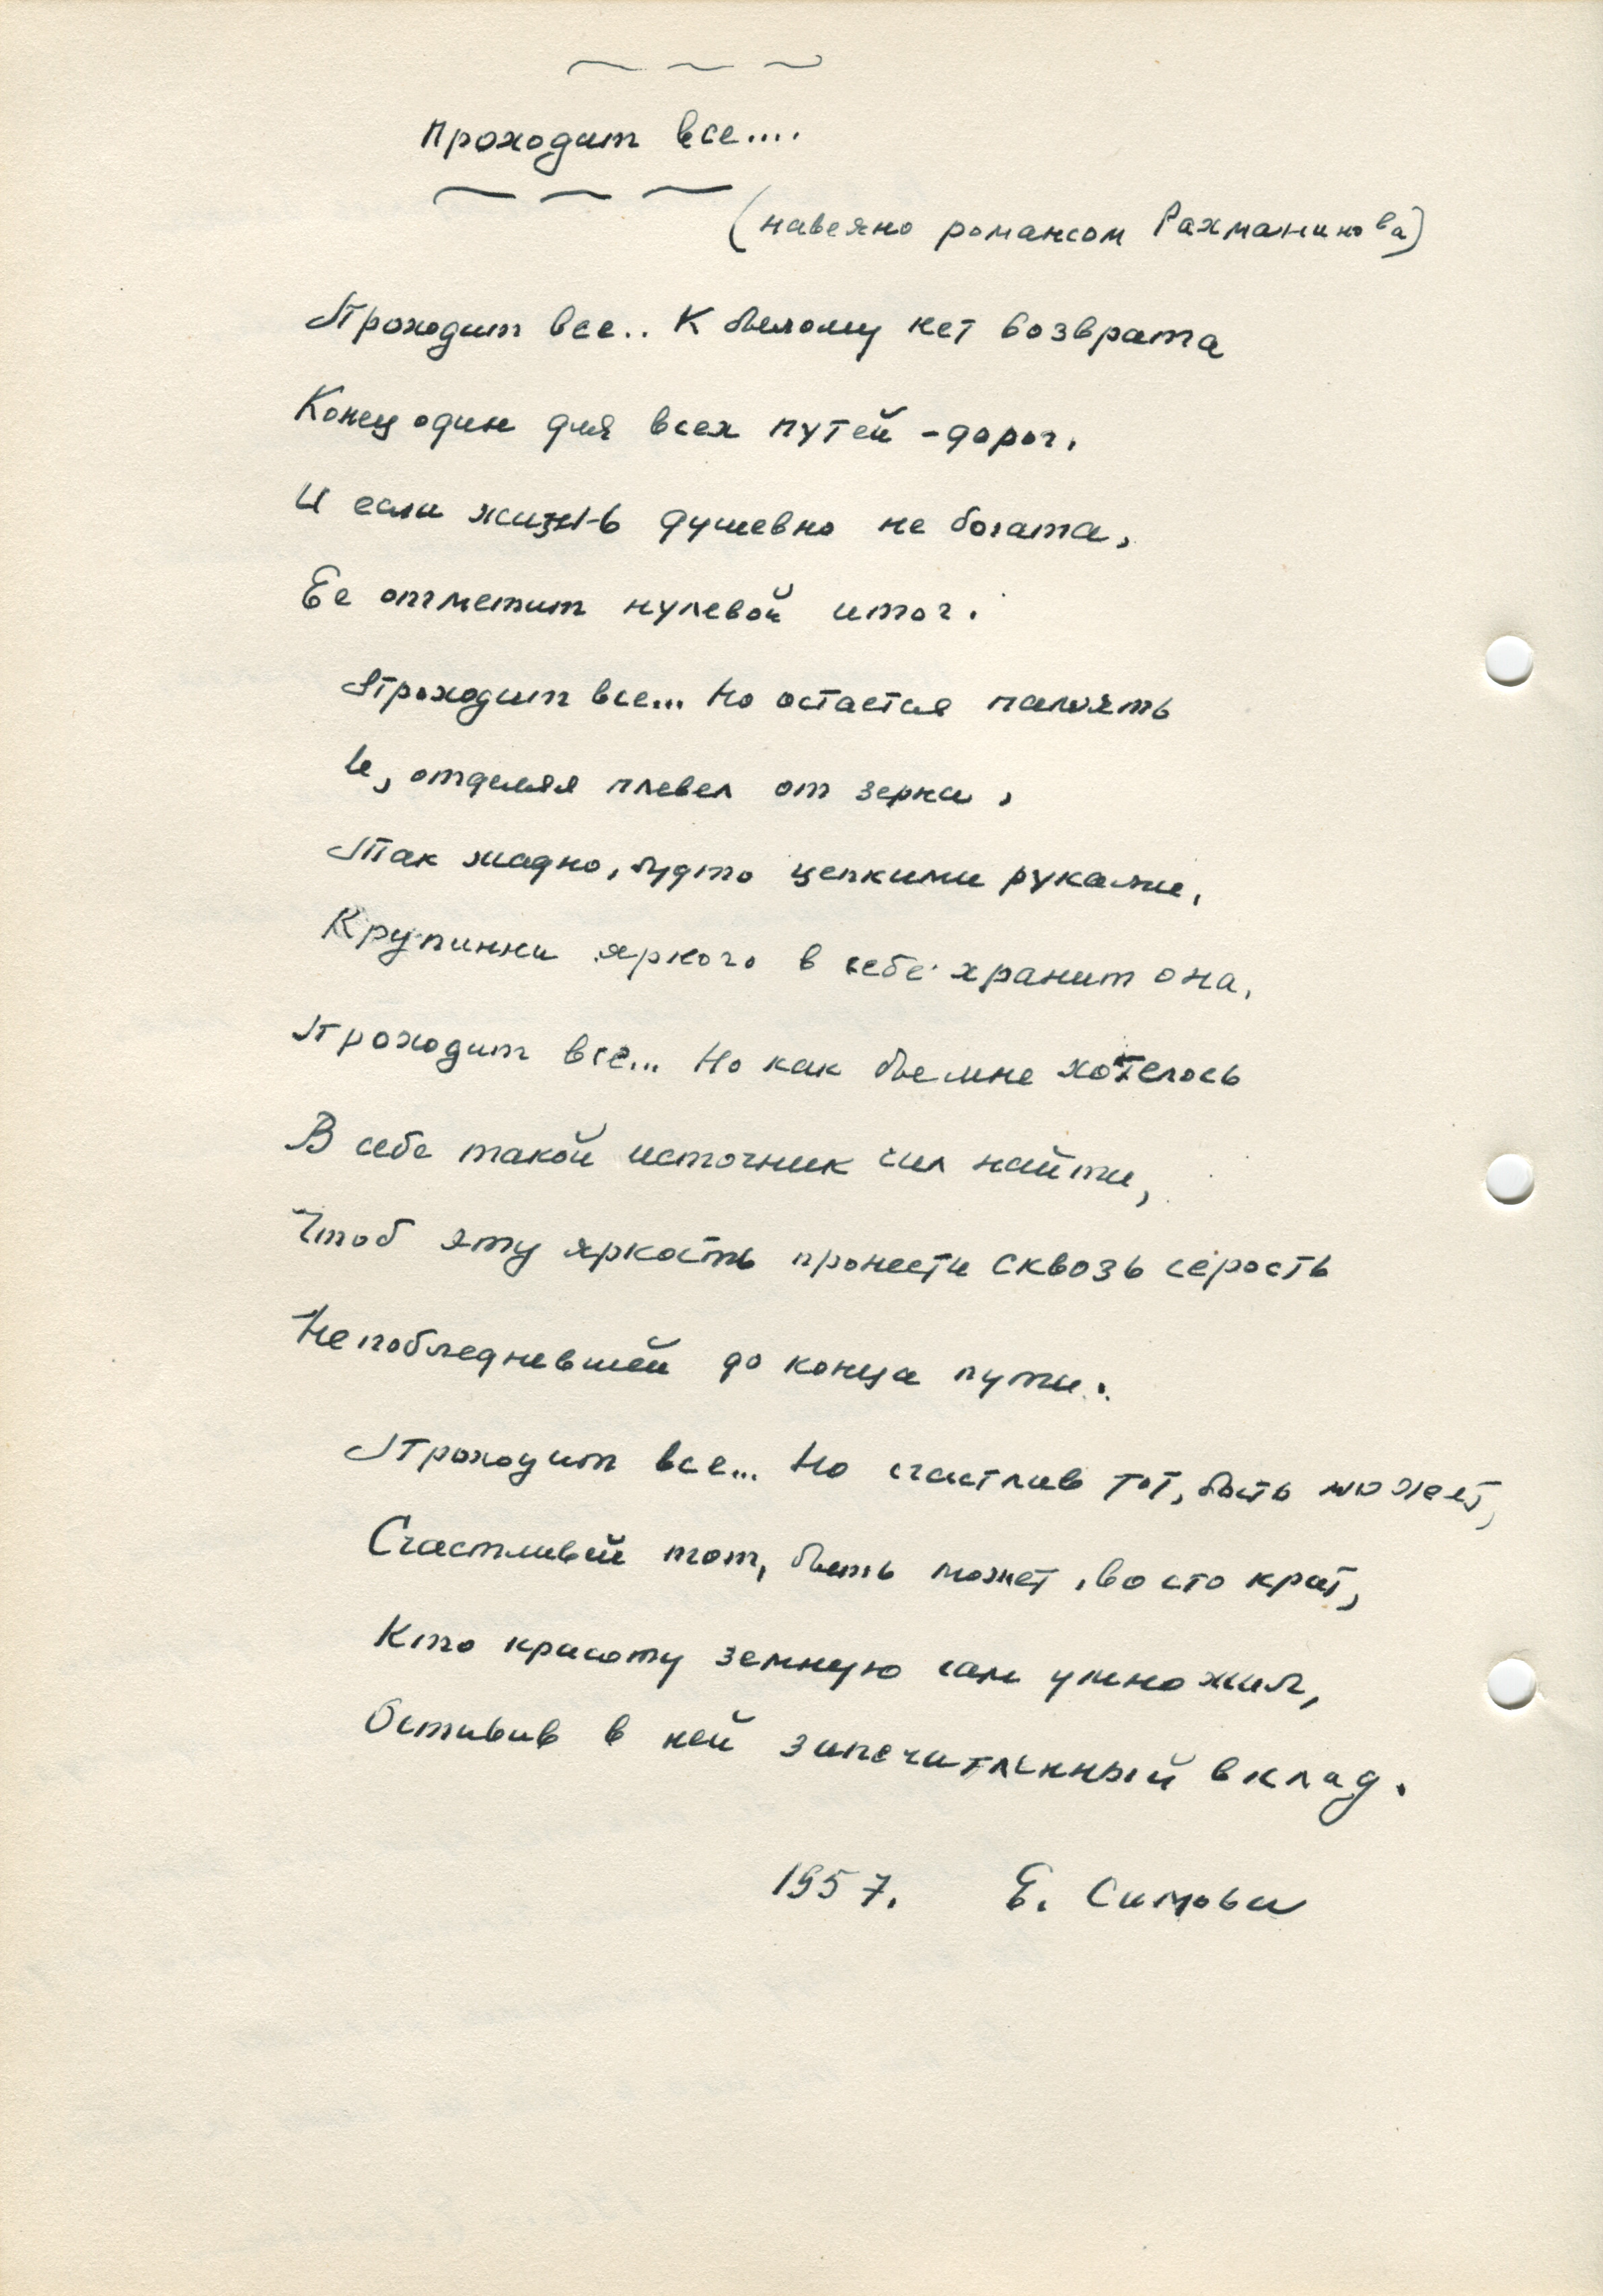 Проходит все....
(навеяно романсом Рахманинова)
Проходит все.. К былому нет возврата
Конец один для всех путей-дорог.
И если жизнь душевно не богата,
Ее отметит нулевой итог.
Проходит все... Но остается память
И, отделяя плевел от зерна,
Так жадно, будто цепкими руками,
Крупинки яркого в себе хранит она.
Проходит все... Но как бы мне хотелось
В себе такой источник сил найти,
Чтоб эту яркость пронести сквозь серость
Непобледневшей до конца пути.
Проходит все... Но счастлив тот, быть может,
Счастливей тот, быть может, во сто крат,
Кто красоту земную сам умножил,
Оставив в ней запечатленный вклад.
1957. Е. Симова